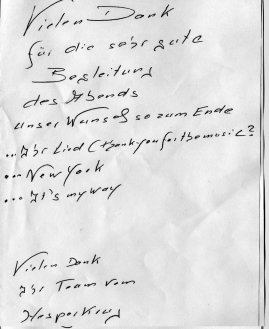 Vielen Dank
für die sehr gute
Begleitung
des Abends
unser Wunsch so zum Ende
... Ihr Lied (thankyouforthemusic?
... New York
... It's my way
Vielen Dank
Ihr Team vom